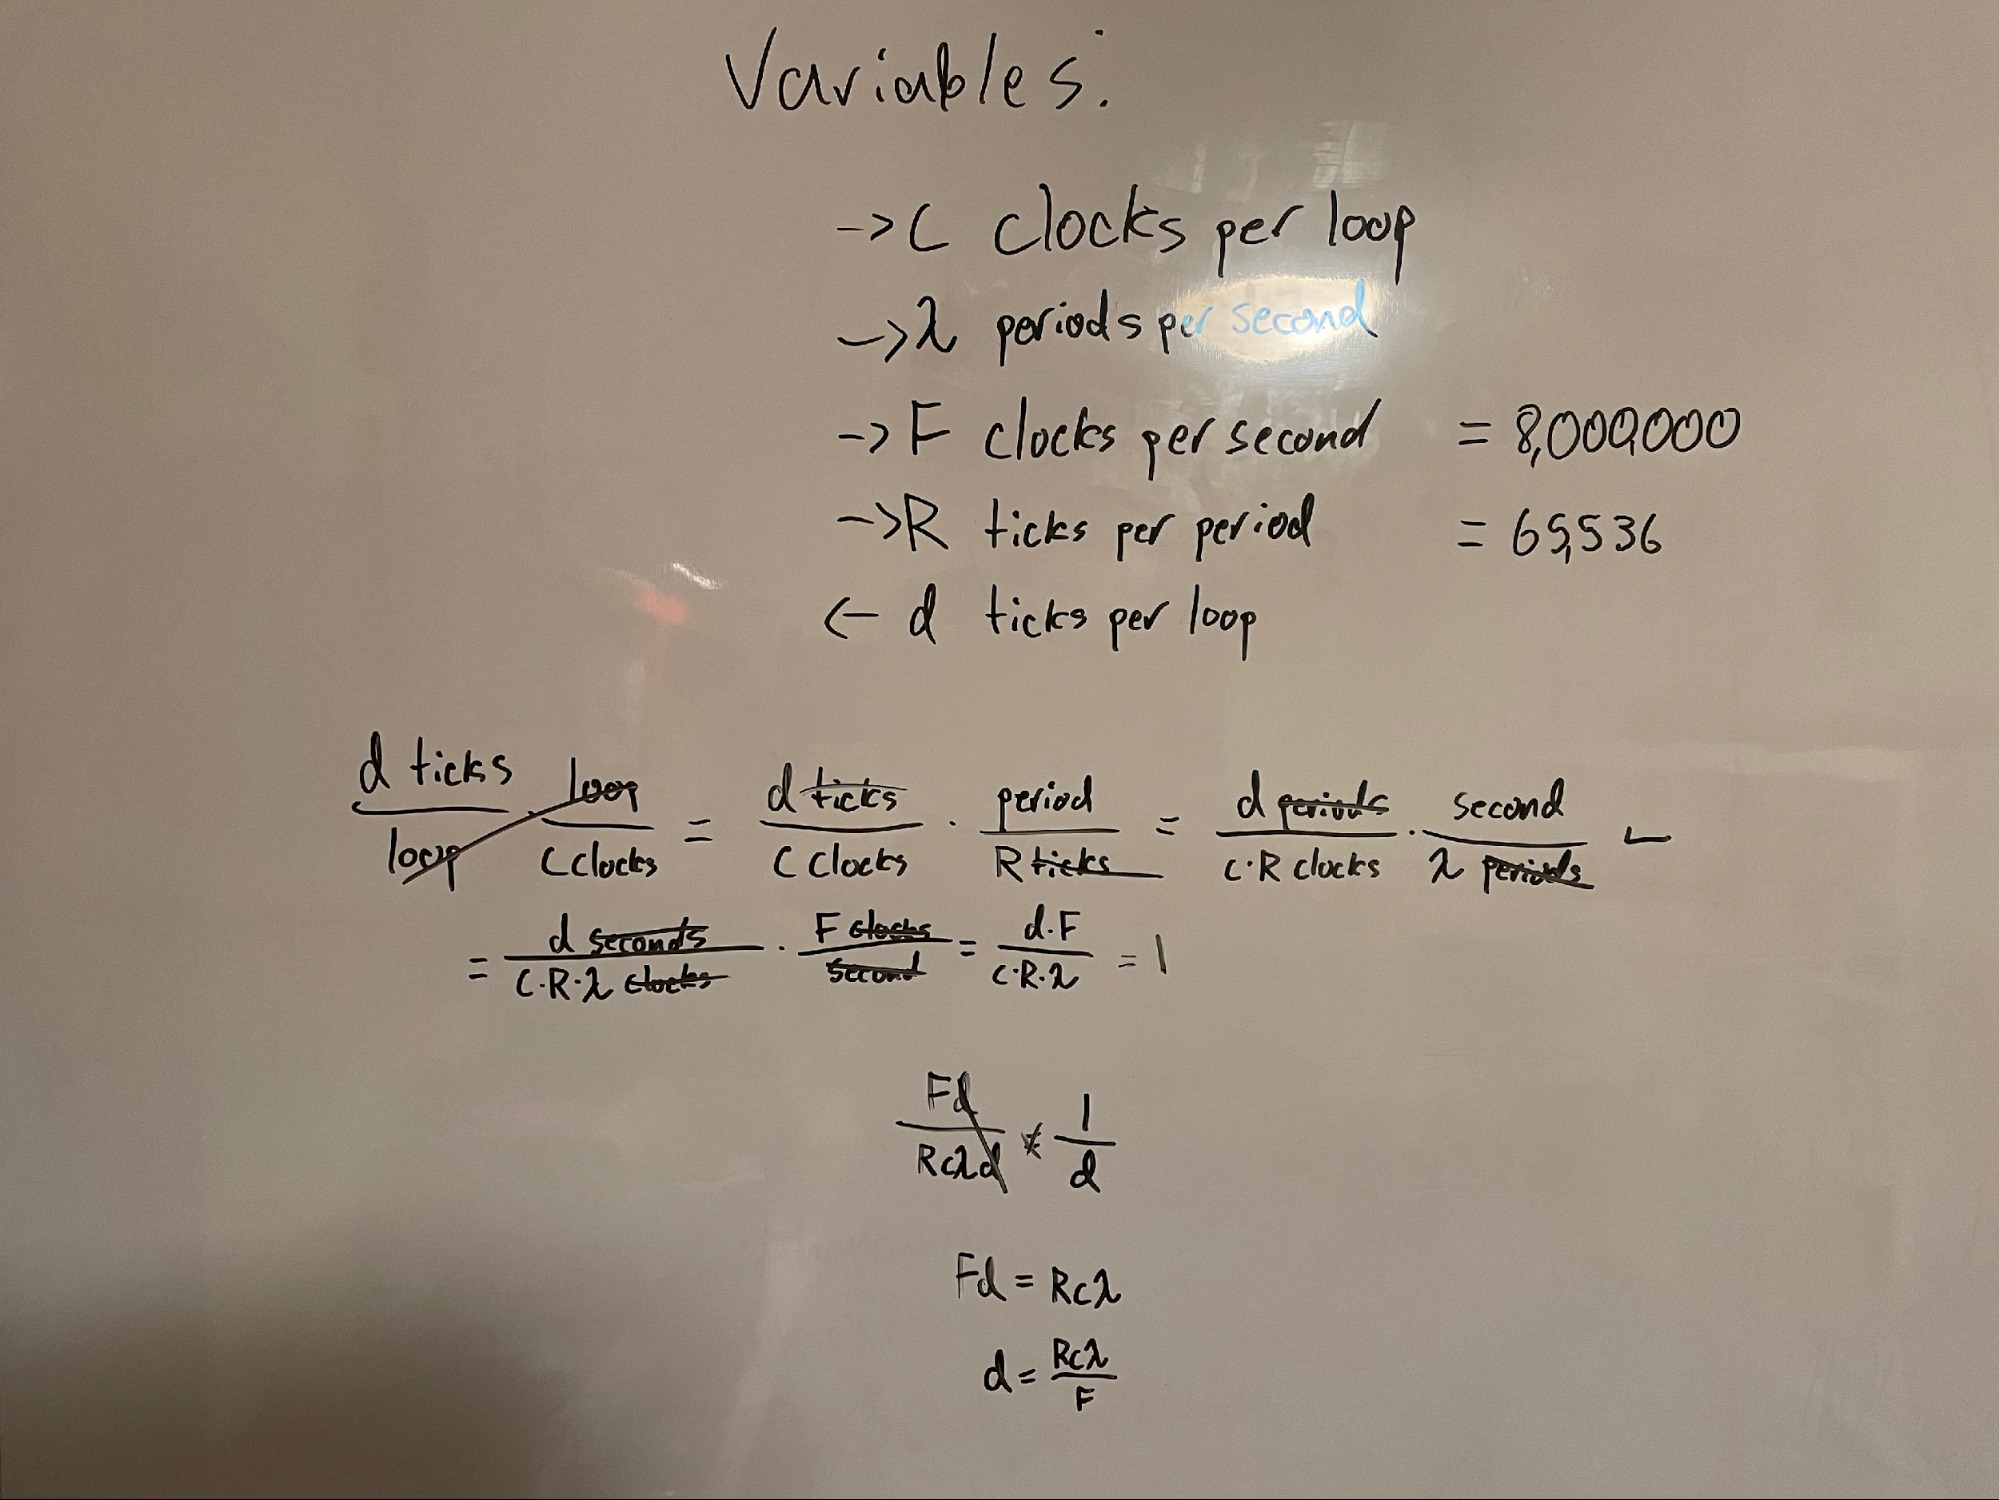 Variables:
-> C clocks per loop
-> λ periods per second
-> F clocks per second = 8,000,000
-> R ticks per period = 65,536
<- d ticks per loop
d ticks / loop · loop / C clocks = d ticks / C clocks · period / R ticks = d periods / C·R clocks · second / λ periods
= d seconds / C·R·λ clocks · F clocks / second = d·F / C·R·λ = 1
Fd / Rcλd * 1 / d
Fd = Rcλ
d = Rcλ / F